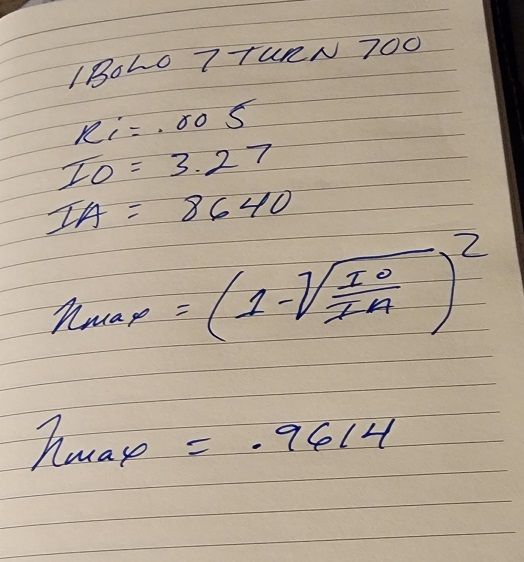 IBOLO 7 TURN 700
Ri = .005
IO = 3.27
IA = 8640
nmax = (1 - √IO/IA)²
nmax = .9614